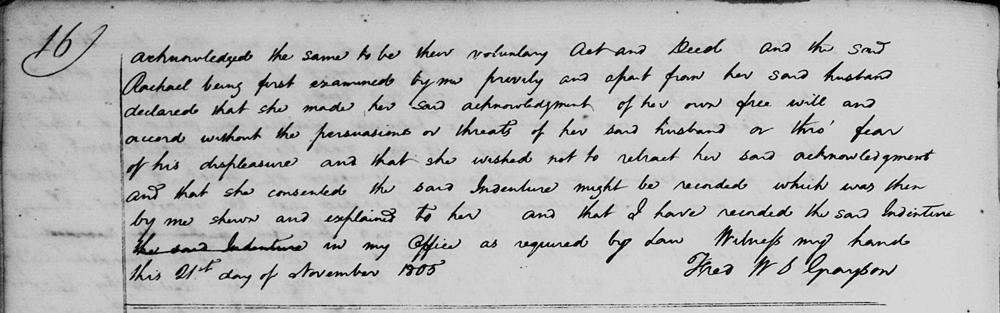 16
acknowledged the same to be their voluntary Act and Deed and the said
Rachael being first examined by me privily and apart from her said husband
declared that she made her said acknowledgment of her own free will and
accord without the persuasions or threats of her said husband or thro' fear
of his displeasure and that she wished not to retract her said acknowledgment
and that she consented the said Indenture might be recorded which was then
by me shewn and explained to her and that I have recorded the said Indenture
the said Indenture in my Office as required by Law Witness my hand
this 21st day of November 1805
Fred W S Grayson